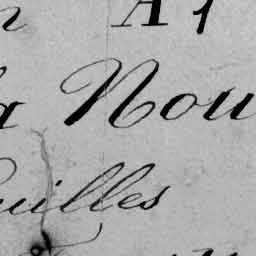 A 1
a Nou
uilles